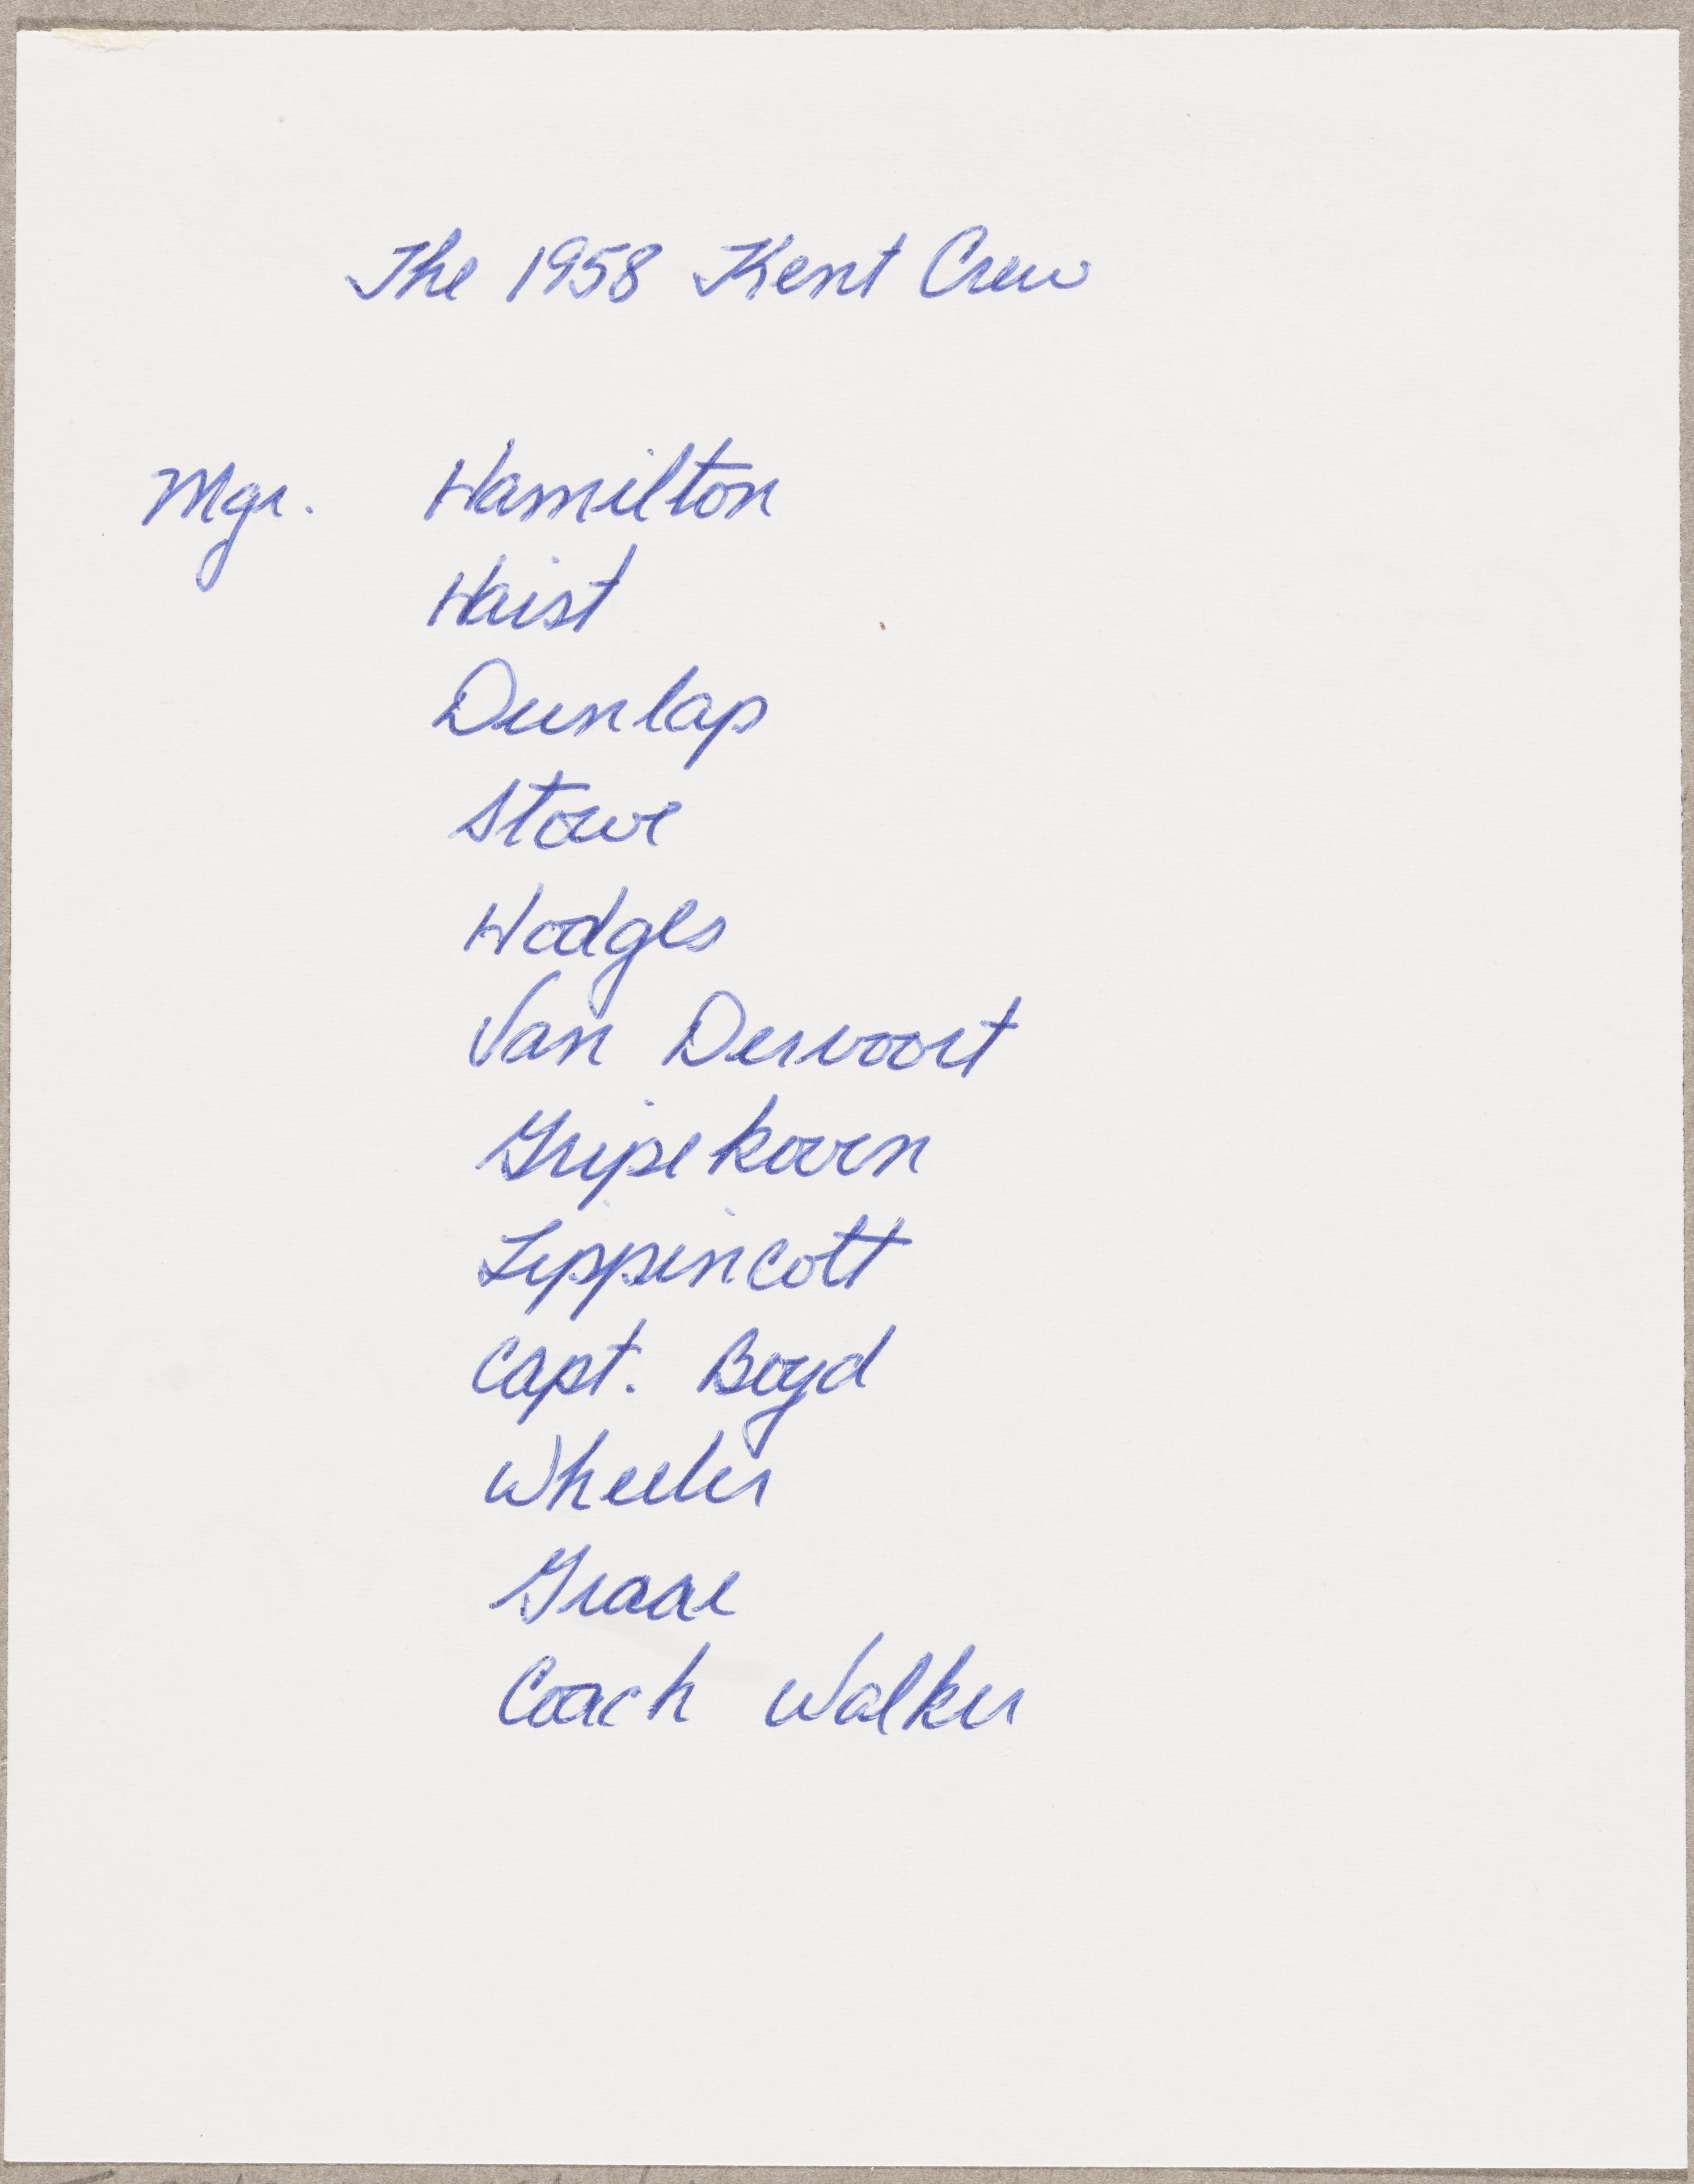 The 1958 Kent Crew
Mgr. Hamilton
Haist
Dunlap
Stowe
Hodges
Van Dervoort
Gripekoven
Lippincott
Capt. Boyd
Wheeler
Graae
Coach Walker